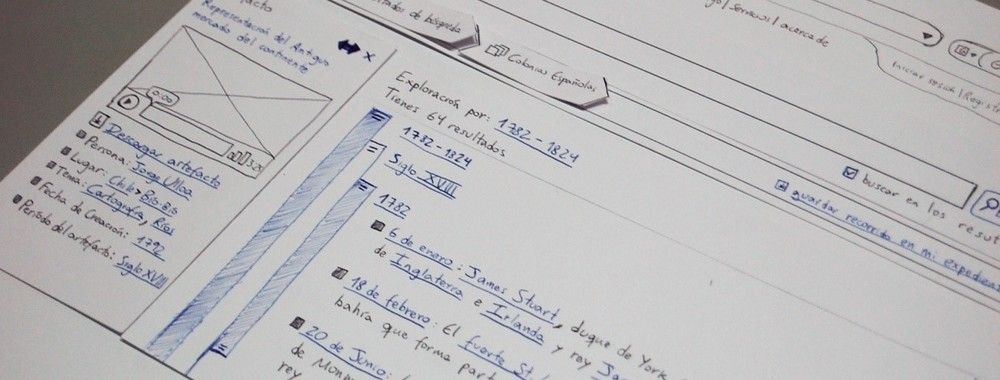 facto
Representación del Antiguo
mercado del continente
0:00
3:20
Descargar artefacto
Persona: Jorge Ulloa
Lugar: Chile > Bío-Bío
Tema: Cartografía, Ríos
Fecha de Creación: 1792
Período del artefacto: Siglo XVIII
tados de búsqueda
Colonias Españolas
go | Servicios | acerca de
Iniciar sesión | Registr
Exploración por: 1782 - 1824
Tienes 64 resultados
buscar en los
resul
guardar recorrido en mi expedien
1782 - 1824
Siglo XVIII
1782
6 de enero: James Stuart, duque de York
de Inglaterra e Irlanda y rey Ja
18 de febrero: El fuerte St.
bahía que forma part
20 de Junio:
de Monm
rey